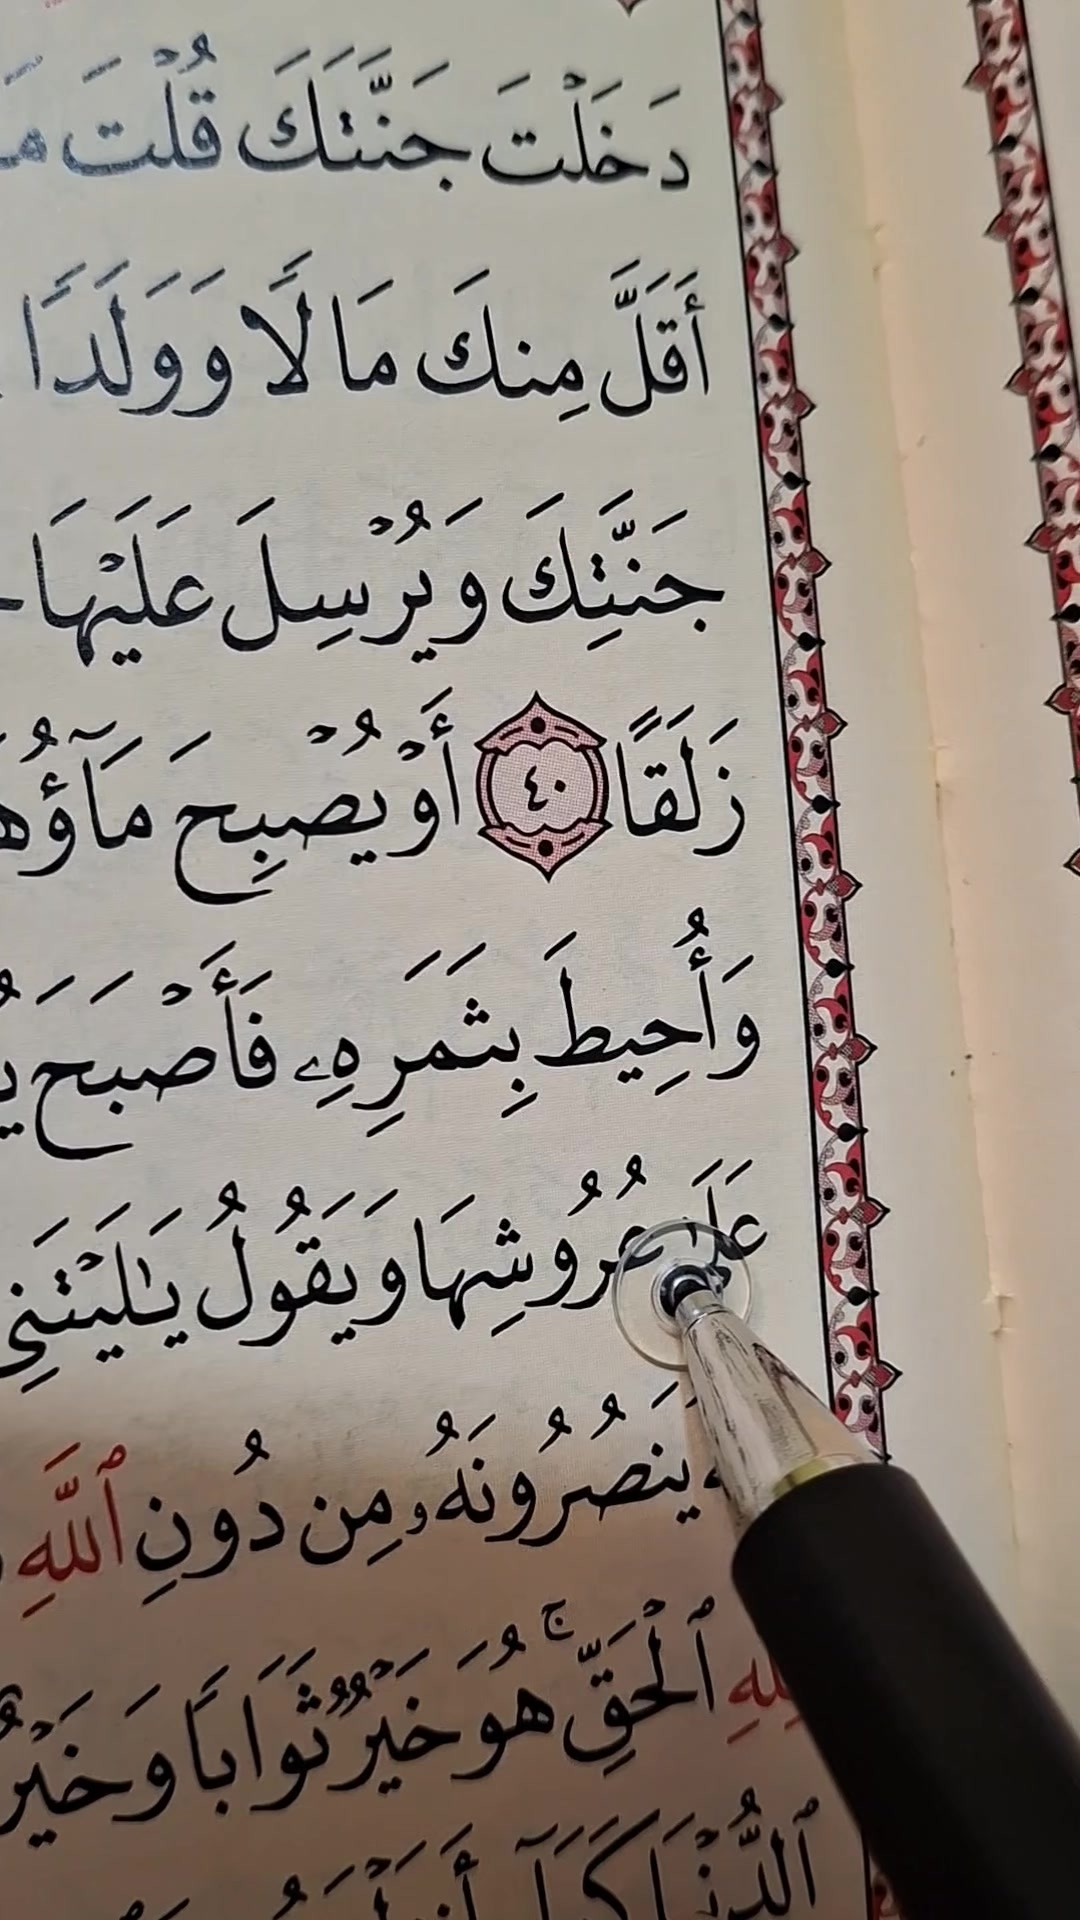 دَخَلْتَ جَنَّتَكَ قُلْتَ
أَقَلَّ مِنكَ مَالًا وَوَلَدًا
جَنَّتِكَ وَيُرْسِلَ عَلَيْهَا
زَلَقًا ٤٠ أَوْ يُصْبِحَ مَآؤُهَا
وَأُحِيطَ بِثَمَرِهِۦ فَأَصْبَحَ
عَلَىٰ عُرُوشِهَا وَيَقُولُ يَٰلَيْتَنِى
يَنصُرُونَهُۥ مِن دُونِ ٱللَّهِ
لِلَّهِ ٱلْحَقِّ ۚ هُوَ خَيْرٌ ثَوَابًا وَخَيْرٌ
ٱلدُّنْيَا كَمَآءٍ